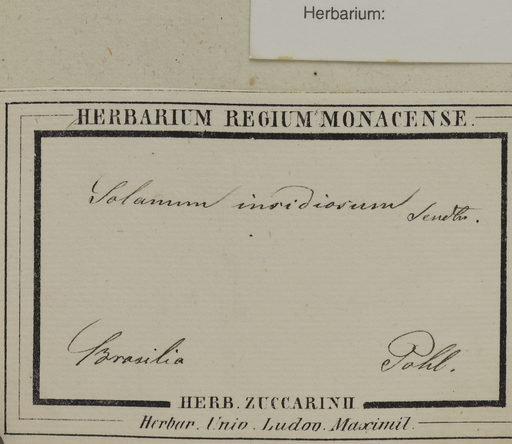 Herbarium:
HERBARIUM REGIUM MONACENSE.
Solanum insidiosum Sendtn.
Brasilia Pohl.
HERB. ZUCCARINII
Herbar. Univ. Ludov. Maximil.